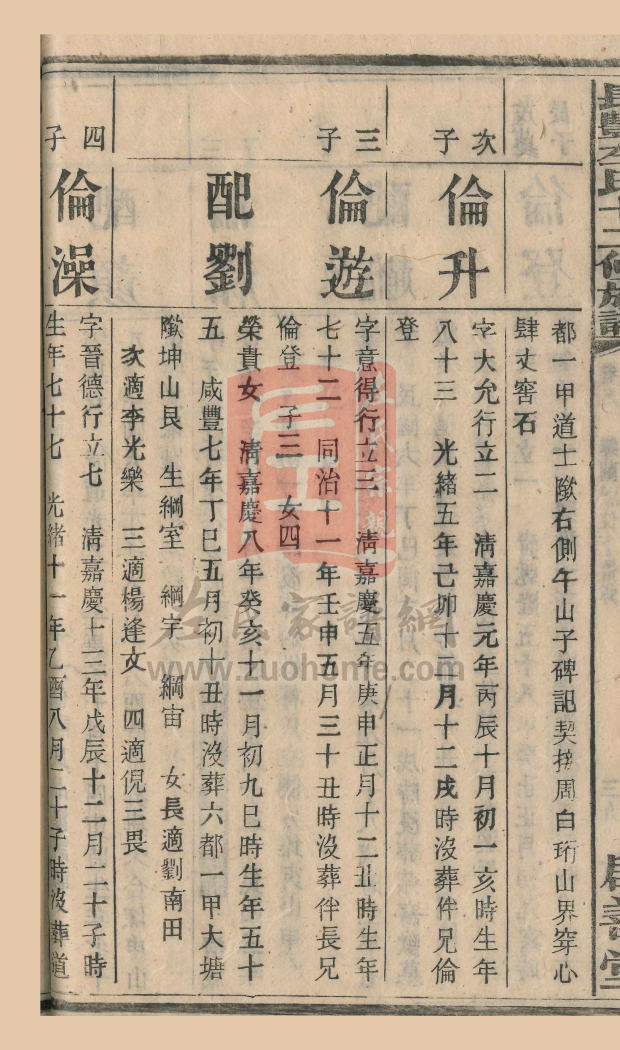 長豐左氏十二修族譜
都一甲道士歐右側午山子碑記契撥周白珩山界穿心
肆丈窖石
次子
倫升
字大允行立二 清嘉慶元年丙辰十月初一亥時生年
八十三 光緒五年己卯十二月十二戌時沒葬伴兄倫
登
三子
倫遊
字意得行立三 清嘉慶五年庚申正月十二丑時生年
七十二 同治十一年壬申五月三十丑時沒葬伴長兄
倫登 子三 女四
配劉
榮貴女 清嘉慶八年癸亥十一月初九巳時生年五十
五 咸豐七年丁巳五月初十丑時沒葬六都一甲大塘
歐坤山艮 生綱室 綱宇 綱宙 女長適劉南田
次適李光樂 三適楊逢文 四適倪三畏
四子
倫澡
字晉德行立七 清嘉慶十三年戊辰十二月二十子時
生年七十七 光緒十一年乙酉八月二十子時沒葬道
左氏家譜網
www.zuohome.com